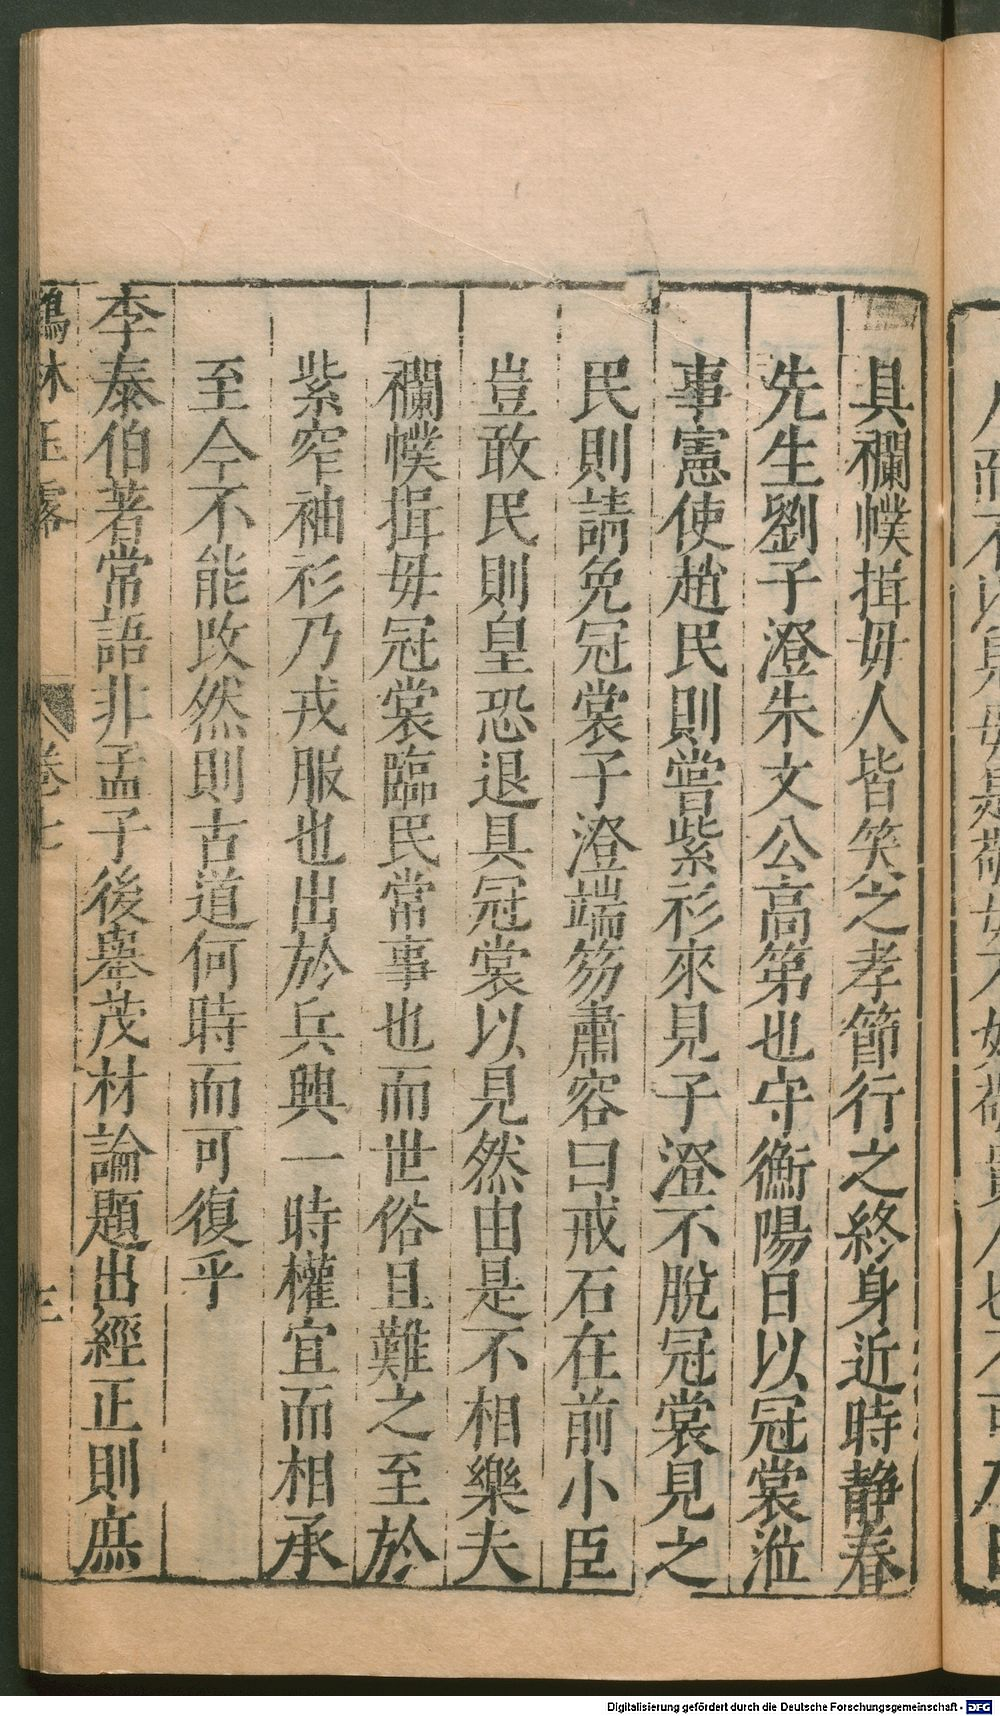 具襴幞揖毋人皆笑之孝節行之終身近時静春
先生劉子澄朱文公高第也守衡陽日以冠裳涖
事憲使趙民則嘗紫衫來見子澄不脫冠裳見之
民則請免冠裳子澄端笏肅容曰戒石在前小臣
豈敢民則皇恐退具冠裳以見然由是不相樂夫
襴幞揖毋冠裳臨民常事也而世俗且難之至於
紫窄袖衫乃戎服也出於兵興一時權宜而相承
至今不能改然則古道何時而可復乎
李泰伯著常語非孟子後舉茂材論題出經正則庶
鶴林玉露 卷七 三
Digitalisierung gefördert durch die Deutsche Forschungsgemeinschaft - DFG